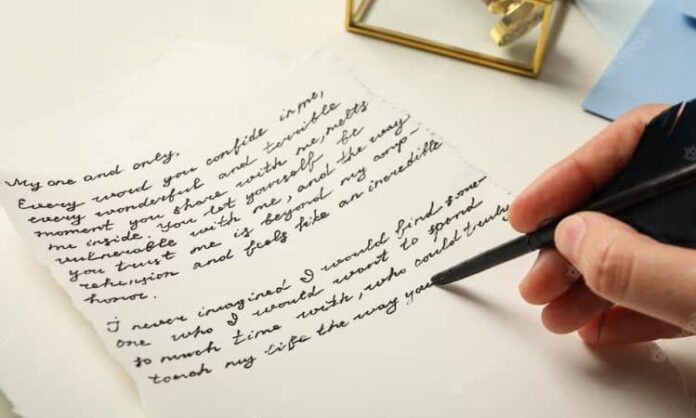 My one and only,
Every word you confide in me,
every wonderful and terrible
moment you share with me, melts
me inside. You let yourself be
vulnerable with me, and the way
you trust me is beyond my amp-
rehension and feels like an incredible
honor.
I never imagined I would find some-
one who I would want to spend
so much time with, who could truly
touch my life the way you